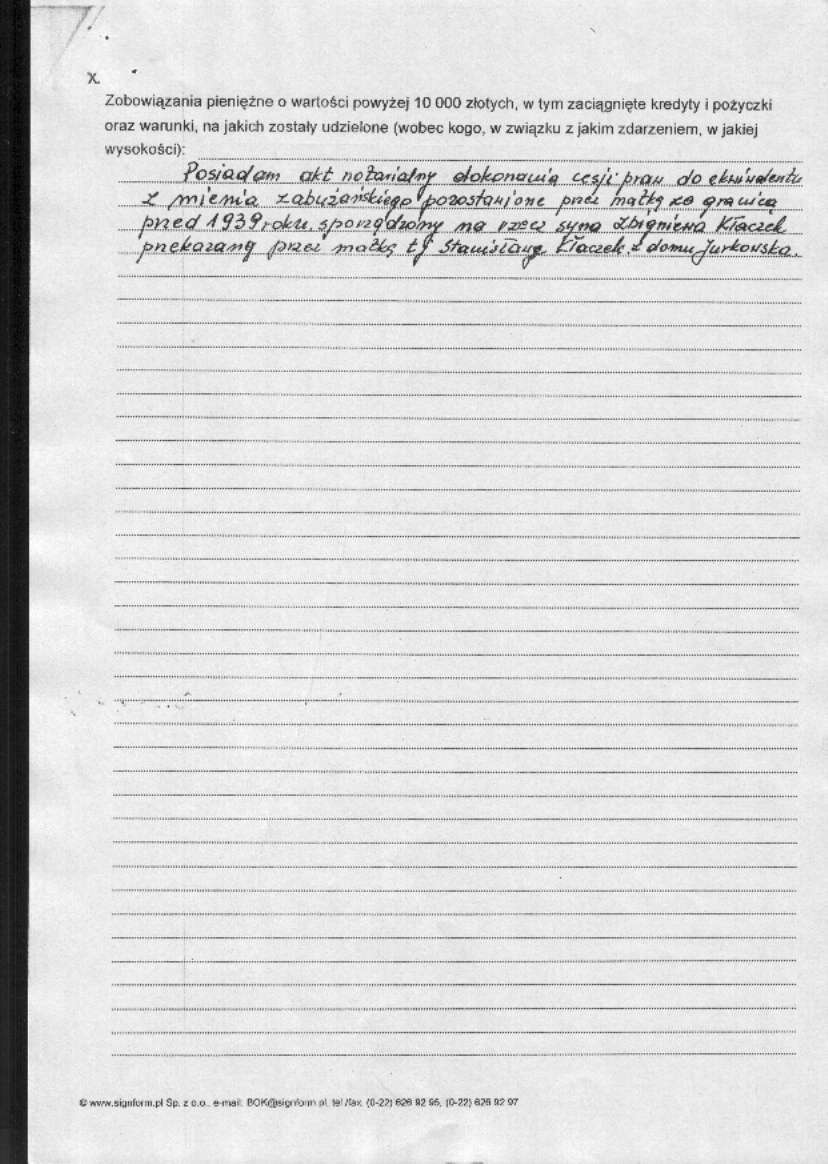 X.
Zobowiązania pieniężne o wartości powyżej 10 000 złotych, w tym zaciągnięte kredyty i pożyczki
oraz warunki, na jakich zostały udzielone (wobec kogo, w związku z jakim zdarzeniem, w jakiej
wysokości):
Posiadam akt notarialny dokonania cesji praw do ekwiwalentu
z mienia zabużańskiego pozostawione przez matkę za granicą
przed 1939 roku, sporządzony na rzecz syna Zbigniewa Kłaczek
przekazany przez matkę tj Stanisławę Kłaczek z domu Jurkowska.
© www.signform.pl Sp. z o.o., e-mail: BOK@signform.pl, tel./fax. (0-22) 626 92 95, (0-22) 626 92 97